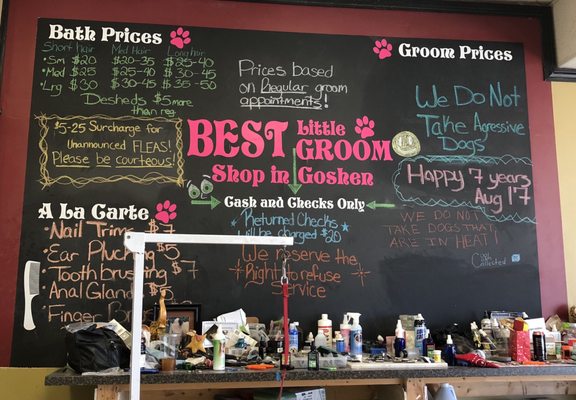 Bath Prices
Short hair Med Hair Long hair
Sm $20 $20-35 $25-40
Med $25 $25-40 $30-45
Lrg $30 $30-45 $35-50
Desheds $5 more
than reg.
$5-25 Surcharge for
Unannounced FLEAS!
Please be courteous!
A La Carte
Nail Trim $7
Ear Plucking $5
Tooth brushing $7
Anal Glands
Finger
Prices based
on Regular groom
appointments!
BEST Little
GROOM
Shop in Goshen
Cash and Checks Only
Returned Checks
will be charged $20
We reserve the
Right to refuse
Service
Groom Prices
We Do Not
Take Agressive
Dogs
Happy 7 years
Aug 17
WE DO NOT
TAKE DOGS THAT
ARE IN HEAT!